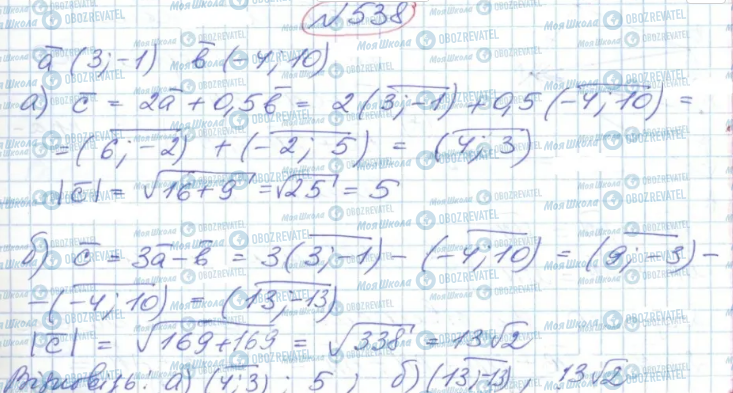 №538
a̅ (3; -1)   b̅ (-4; 10)
а) c̅ = 2a̅ + 0,5b̅ = 2(3; -1) + 0,5(-4; 10) =
= (6; -2) + (-2; 5) = (4; 3)
|c̅| = √16+9 = √25 = 5
б) c̅ = 3a̅ - b̅ = 3(3; -1) - (-4; 10) = (9; -3) -
- (-4; 10) = (13; -13)
|c̅| = √169+169 = √338 = 13√2
Відповідь: а) (4; 3) ; 5 ; б) (13; -13), 13√2